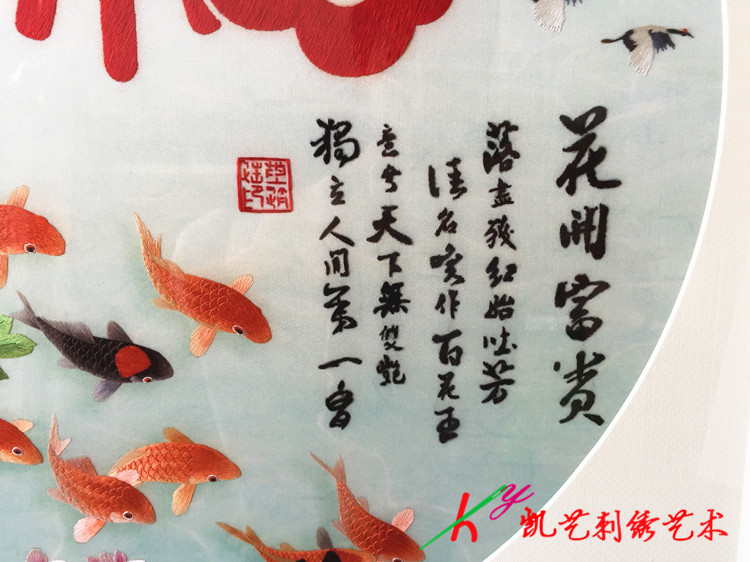 花開富貴
落盡殘紅始吐芳
佳名喚作百花王
天下無雙艷
獨立人間第一香
Ky 凯艺刺绣艺术